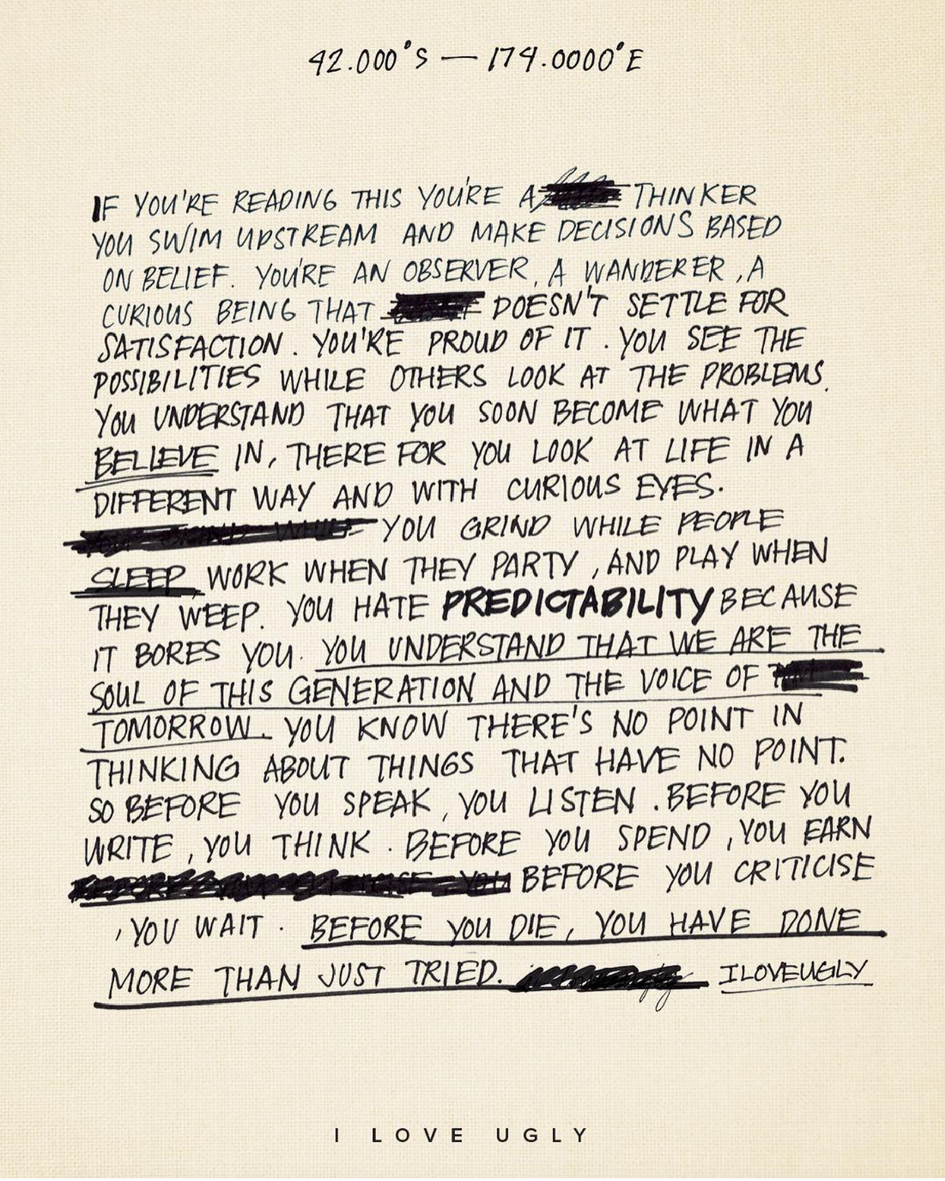 42.000°S — 174.0000°E
IF YOU'RE READING THIS YOU'RE A THINKER
YOU SWIM UPSTREAM AND MAKE DECISIONS BASED
ON BELIEF. YOU'RE AN OBSERVER, A WANDERER, A
CURIOUS BEING THAT DOESN'T SETTLE FOR
SATISFACTION. YOU'RE PROUD OF IT. YOU SEE THE
POSSIBILITIES WHILE OTHERS LOOK AT THE PROBLEMS.
YOU UNDERSTAND THAT YOU SOON BECOME WHAT YOU
BELIEVE IN, THERE FOR YOU LOOK AT LIFE IN A
DIFFERENT WAY AND WITH CURIOUS EYES.
YOU GRIND WHILE PEOPLE
SLEEP, WORK WHEN THEY PARTY, AND PLAY WHEN
THEY WEEP. YOU HATE PREDICTABILITY BECAUSE
IT BORES YOU. YOU UNDERSTAND THAT WE ARE THE
SOUL OF THIS GENERATION AND THE VOICE OF
TOMORROW. YOU KNOW THERE'S NO POINT IN
THINKING ABOUT THINGS THAT HAVE NO POINT.
SO BEFORE YOU SPEAK, YOU LISTEN. BEFORE YOU
WRITE, YOU THINK. BEFORE YOU SPEND, YOU EARN
BEFORE YOU CRITICISE
, YOU WAIT. BEFORE YOU DIE, YOU HAVE DONE
MORE THAN JUST TRIED. ILOVEUGLY
I LOVE UGLY